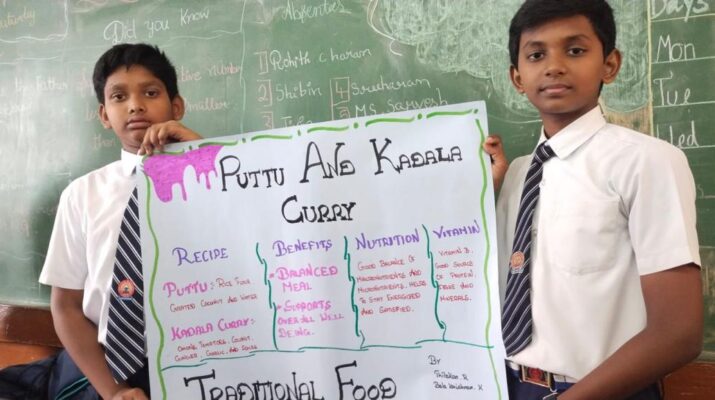 Did you Know
Absenties
Days
1 Rohith charan
2 Shibin
4 Sracharan
5 M.S. Sarvesh
Mon
Tue
Wed
smaller
PUTTU AND KADALA
CURRY
RECIPE
PUTTU:- RICE FLOUR
GRATED COCONUT AND WATER
KADALA CURRY:-
ONION, TOMATOES, COCONUT,
GINGER, GARLIC, AND SPICES
BENEFITS
- BALANCED
MEAL
- SUPPORTS
OVERALL WELL
BEING.
NUTRITION
GOOD BALANCE OF
MACRONUTRIENTS AND
MICRONUTRIENTS, HELPS
TO STAY ENERGISED
AND SATISFIED.
VITAMIN
VITAMIN B.
GOOD SOURCE
OF PROTEIN,
FIBRE AND
MINERALS.
TRADITIONAL FOOD
By